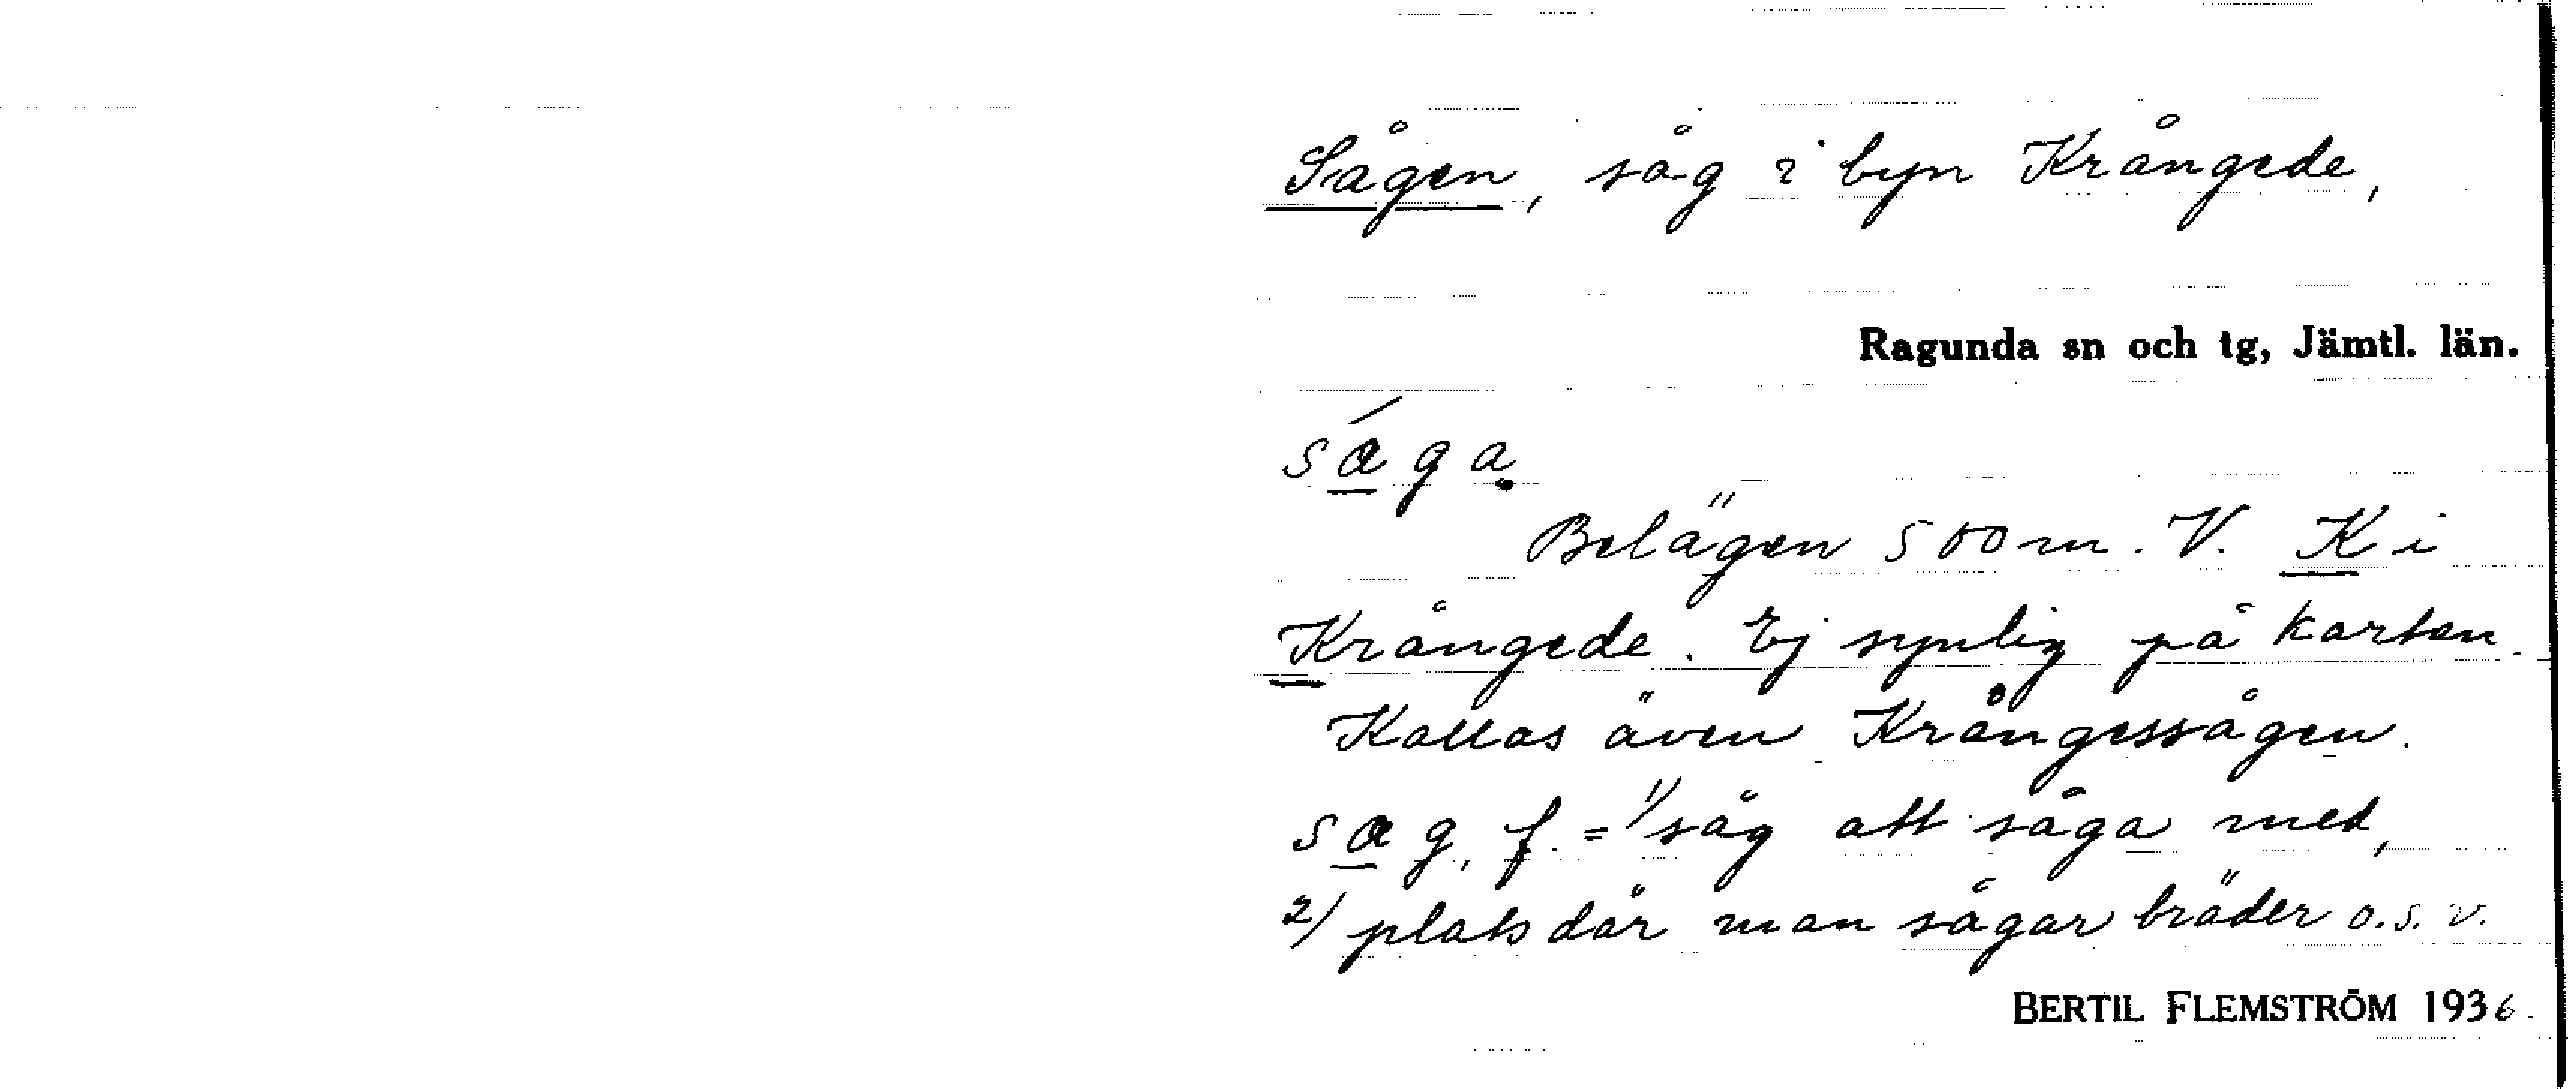 Sågen, såg i byn Krångede,
Ragunda sn och tg, Jämtl. län.
sága
Belägen 500 m. V. K i
Krångede. Ej synlig på kartan.
Kallas även Krångessågen.
sag, f. = 1/ såg att såga med,
2/ plats där man sågar bräder o.s.v.
BERTIL FLEMSTRÖM 1936.